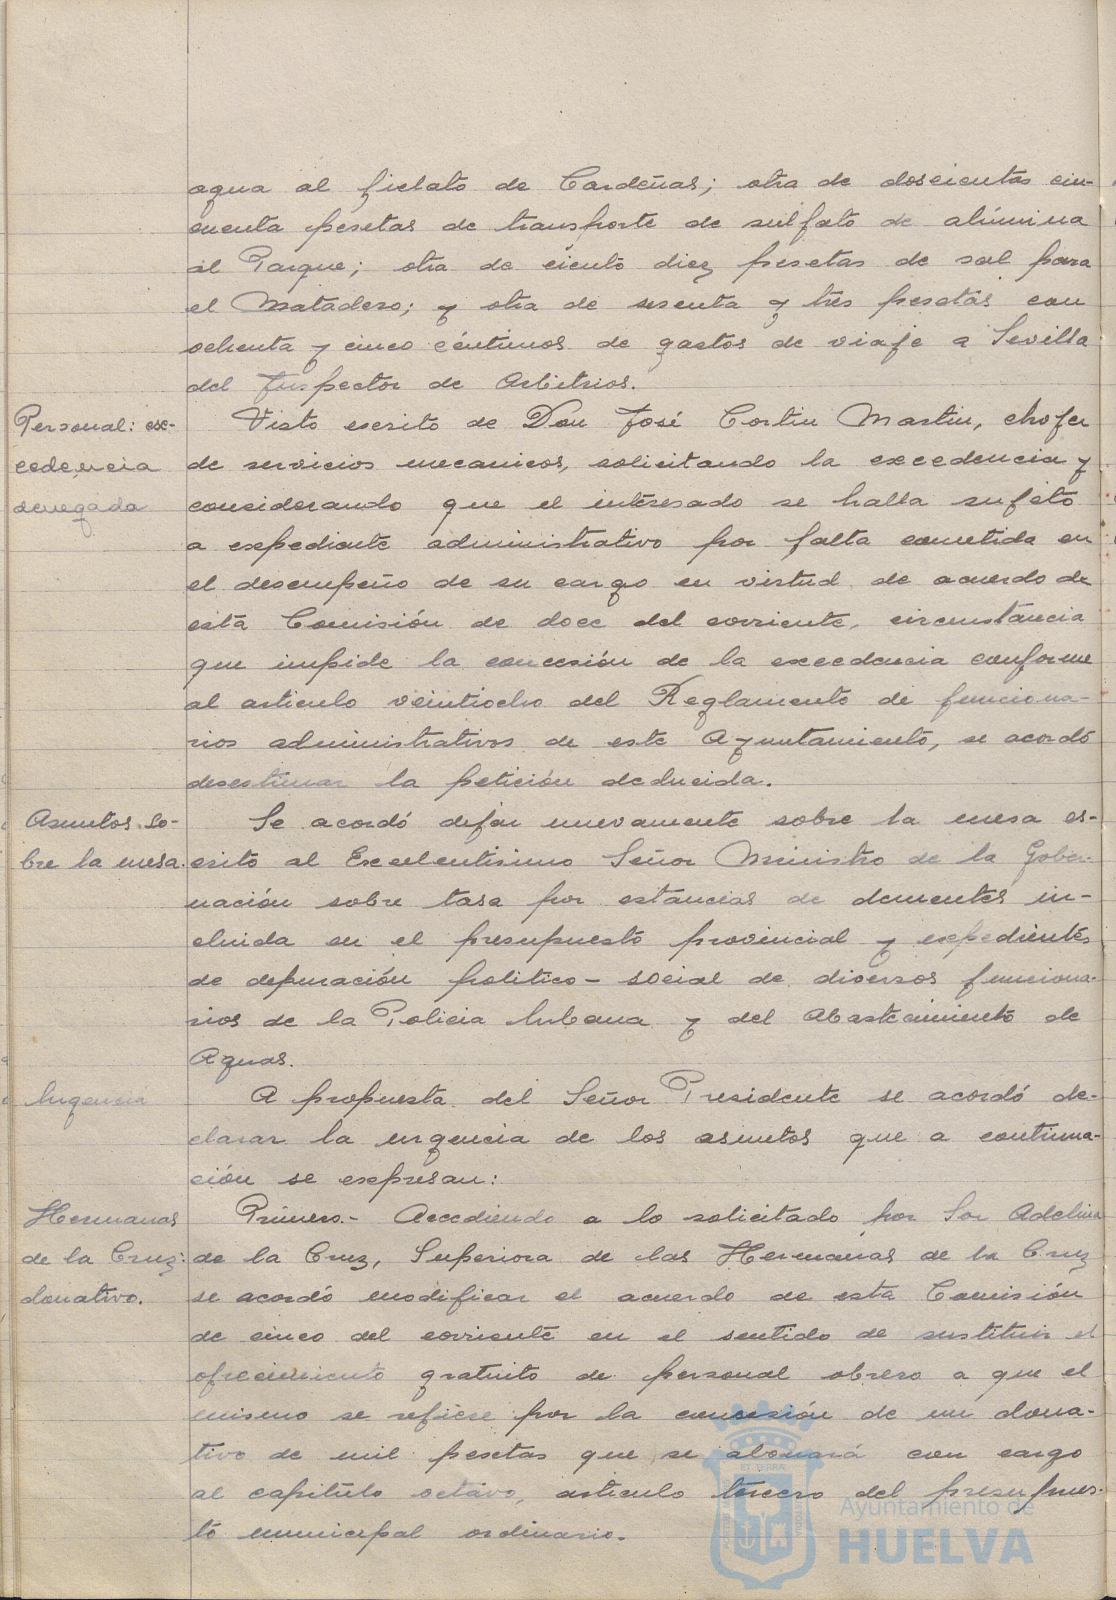 agua al fielato de Cardeñas; otra de doscientas cin-
cuenta pesetas de transporte de sulfato de alúmina
al Parque; otra de ciento diez pesetas de sal para
el Matadero; y otra de sesenta y tres pesetas con
ochenta y cinco céntimos de gastos de viaje a Sevilla
del Inspector de Arbitrios.
Personal: ex-
cedencia
denegada
Visto escrito de Don José Cortin Martin, chofer
de servicios mecanicos, solicitando la excedencia y
considerando que el interesado se halla sujeto
a expediente administrativo por falta cometida en
el desempeño de su cargo en virtud de acuerdo de
esta Comisión de doce del corriente, circunstancia
que impide la concesión de la excedencia conforme
al articulo veintiocho del Reglamento de funciona-
rios administrativos de este Ayuntamiento, se acordó
desestimar la petición deducida.
Asuntos so-
bre la mesa.
Se acordó dejar nuevamente sobre la mesa es-
crito al Excelentisimo Señor Ministro de la Gober-
nación sobre tasa por estancias de dementes in-
cluida en el presupuesto provincial y expedientes
de depuración politico-social de diversos funciona-
rios de la Policia Urbana y del Abastecimiento de
Aguas.
Urgencia
A propuesta del Señor Presidente se acordó de-
clarar la urgencia de los asuntos que a continua-
ción se expresan:
Hermanas
de la Cruz:
donativo.
Primero.- Accediendo a lo solicitado por Sor Adelina
de la Cruz, Superiora de las Hermanas de la Cruz
se acordó modificar el acuerdo de esta Comisión
de cinco del corriente en el sentido de sustituir el
ofrecimiento gratuito de personal obrero a que el
mismo se refiere por la concesión de un dona-
tivo de mil pesetas que se abonará con cargo
al capitulo octavo, articulo tercero del presupues-
to municipal ordinario.
Ayuntamiento de
HUELVA